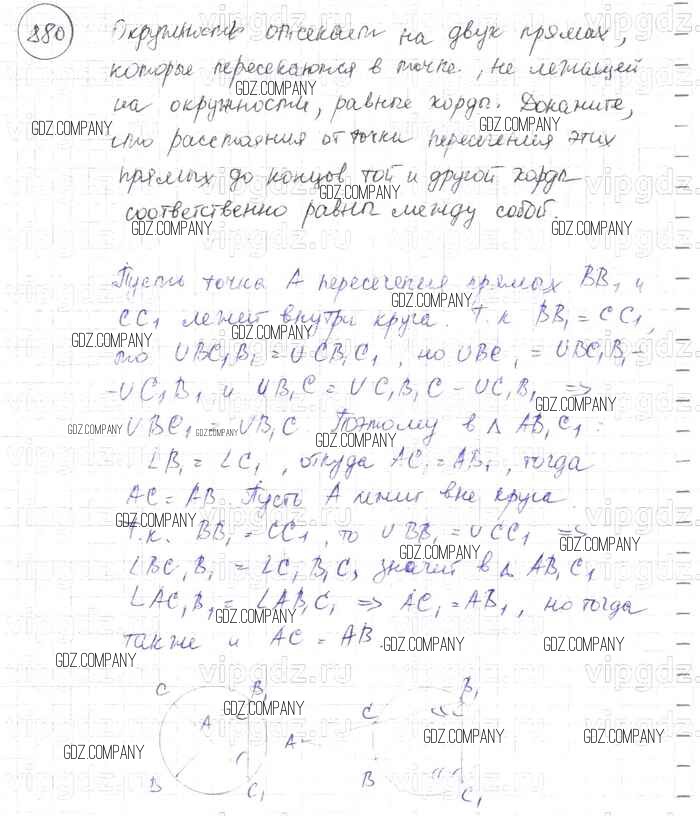 880
Окружность отсекает на двух прямах,
которые пересекаются в точке, не лежащей
на окружности, равные хорды. Докажите,
что расстояния от точки пересечения этих
прямых до концов той и другой хорды
соответственно равны между собой.
Пусть точка A пересечения прямых BB₁ и
CC₁ лежит внутри круга. Т.к BB₁ = CC₁,
то ∪BC₁B₁ = ∪CB₁C₁, но ∪BC₁ = ∪BC₁B₁-
-∪C₁B₁ и ∪B₁C = ∪C₁B₁C - ∪C₁B₁ =>
∪BC₁ = ∪B₁C. Поэтому в △ AB₁C₁:
∠B₁ = ∠C₁, откуда AC₁ = AB₁, тогда
AC = AB. Пусть A лежит вне круга
Т.к. BB₁ = CC₁, то ∪BB₁ = ∪CC₁ =>
∠BC₁B₁ = ∠C₁B₁C, значит в △ AB₁C₁
∠AC₁B₁ = ∠AB₁C₁ => AC₁ = AB₁, но тогда
также и AC = AB.
C B₁ A B C₁
A C B₁ B C₁
GDZ.COMPANY
vipgdz.ru